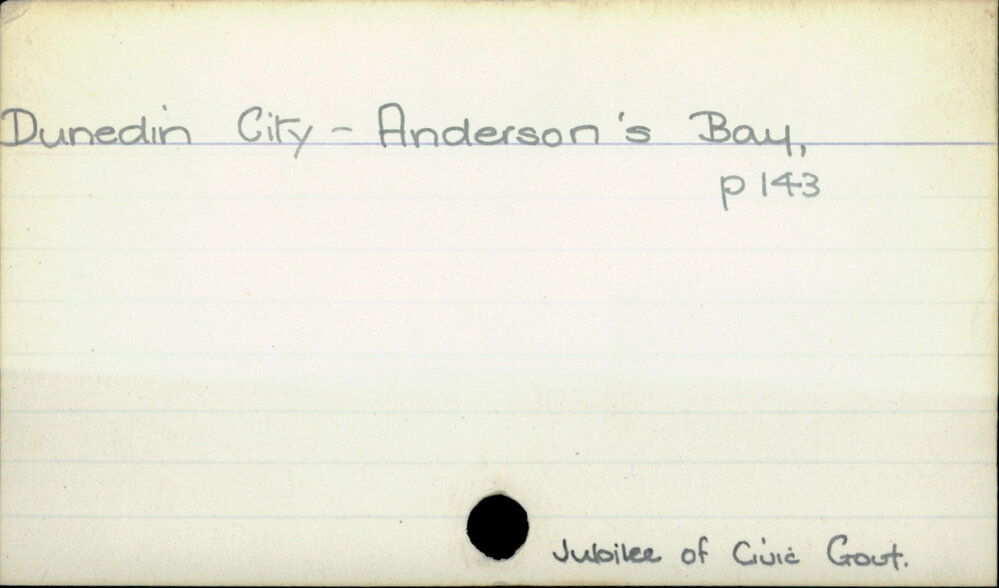 Dunedin City - Anderson's Bay,
p 143
Jubilee of Civic Govt.